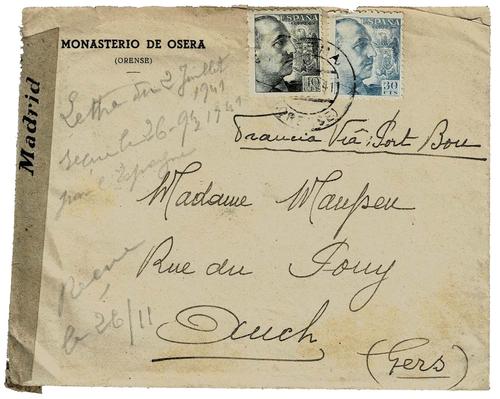 MONASTERIO DE OSERA
(ORENSE)
Madrid
ESPAÑA
40
CTS
ESPAÑA
30
CTS
Lettre du 2 Juillet
1941
le 26-9 1941
pour l'Espagne
Francia Via: Port Bou
Madame
Rue du
Auch
(Gers)
le 26/11